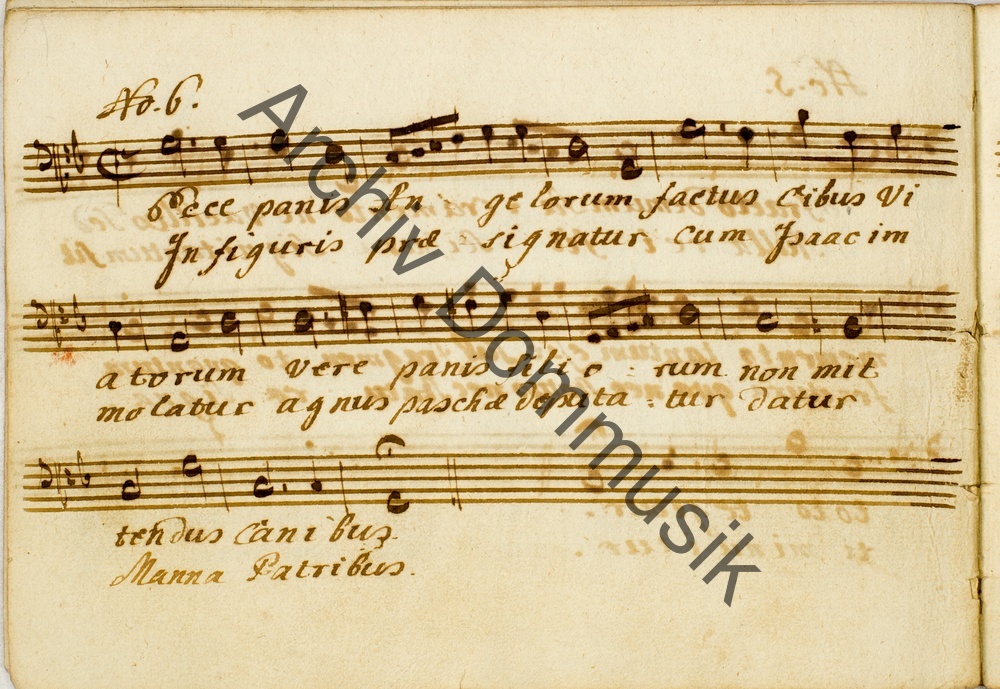 No. 6.
Ecce panis An gelorum factus Cibus Vi
In figuris præ - signatur cum Isaac im
a torum vere panis filio : rum non mit
molatur agnus paschæ deputa : tur datur
tendus Canibus.
Manna Patribus.
Archiv Dommusik